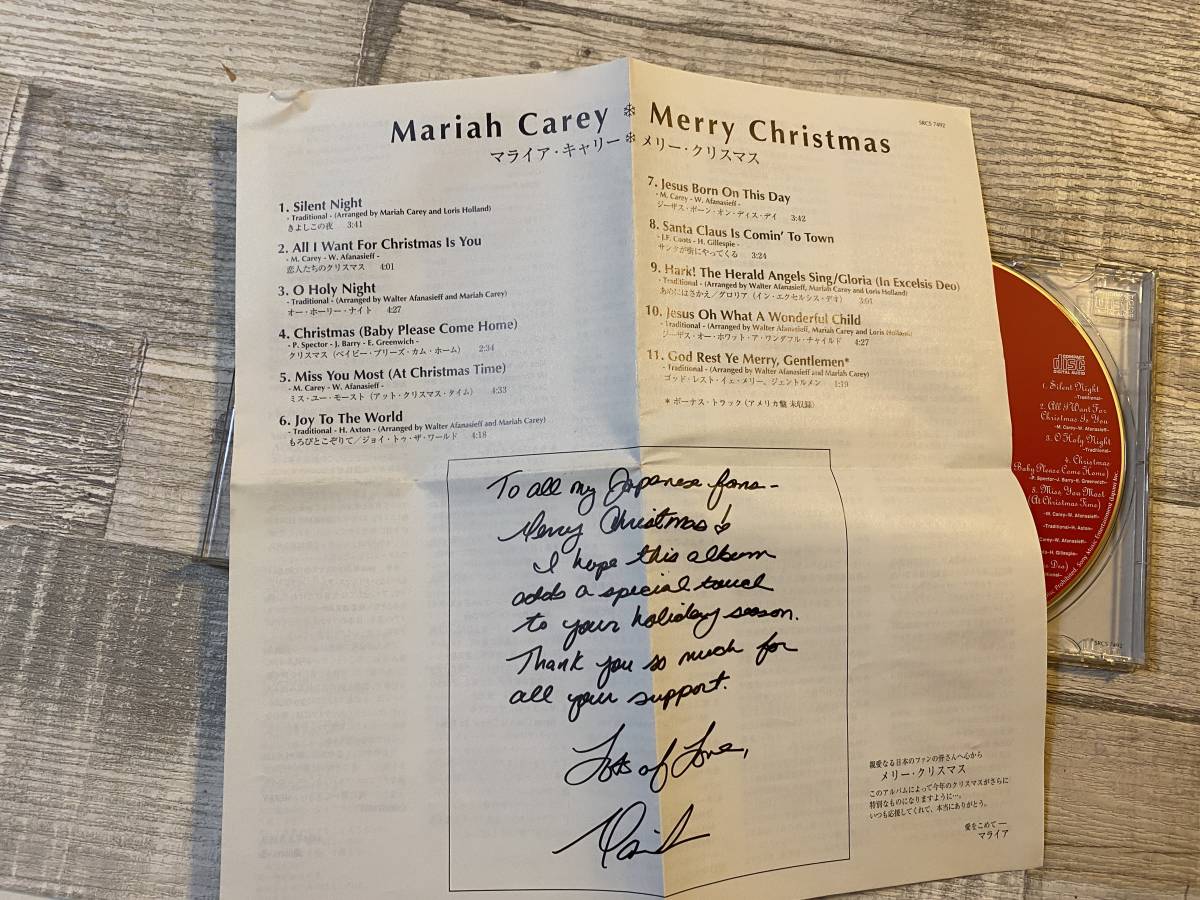 Mariah Carey ❄ Merry Christmas
SRCS 7492
マライア・キャリー❄メリー・クリスマス
1. Silent Night
- Traditional - (Arranged by Mariah Carey and Loris Holland)
きよしこの夜 3:41
2. All I Want For Christmas Is You
- M. Carey - W. Afanasieff -
恋人たちのクリスマス 4:01
3. O Holy Night
- Traditional - (Arranged by Walter Afanasieff and Mariah Carey)
オー・ホーリー・ナイト 4:27
4. Christmas (Baby Please Come Home)
- P. Spector - J. Barry - E. Greenwich -
クリスマス（ベイビー・プリーズ・カム・ホーム） 2:34
5. Miss You Most (At Christmas Time)
- M. Carey - W. Afanasieff -
ミス・ユー・モースト（アット・クリスマス・タイム） 4:33
6. Joy To The World
- Traditional - H. Axton - (Arranged by Walter Afanasieff and Mariah Carey)
もろびとこぞりて／ジョイ・トゥ・ザ・ワールド 4:18
7. Jesus Born On This Day
- M. Carey - W. Afanasieff -
ジーザス・ボーン・オン・ディス・デイ 3:42
8. Santa Claus Is Comin' To Town
- J.F. Coots - H. Gillespie -
サンタが街にやってくる 3:24
9. Hark! The Herald Angels Sing/Gloria (In Excelsis Deo)
- Traditional - (Arranged by Walter Afanasieff, Mariah Carey and Loris Holland)
あめにはさかえ／グロリア（イン・エクセルシス・デオ） 3:01
10. Jesus Oh What A Wonderful Child
- Traditional - (Arranged by Walter Afanasieff, Mariah Carey and Loris Holland)
ジーザス・オー・ホワット・ア・ワンダフル・チャイルド 4:27
11. God Rest Ye Merry, Gentlemen*
- Traditional - (Arranged by Walter Afanasieff and Mariah Carey)
ゴッド・レスト・イェ・メリー、ジェントルメン 1:19
＊ボーナス・トラック（アメリカ盤 未収録）
To all my Japanese fans -
Merry Christmas!
I hope this album
adds a special touch
to your holiday season.
Thank you so much for
all your support.
Lots of Love,
親愛なる日本のファンの皆さんへ心から
メリー・クリスマス
このアルバムによって今年のクリスマスがさらに
特別なものになりますように…。
いつも応援してくれて、本当にありがとう。
愛をこめて―
マライア
COMPACT
disc
DIGITAL AUDIO
1. Silent Night
-Traditional-
2. All I Want For
Christmas Is You
-M. Carey-W. Afanasieff-
3. O Holy Night
-Traditional-
4. Christmas
(Baby Please Come Home)
-P. Spector-J. Barry-E. Greenwich-
5. Miss You Most
(At Christmas Time)
-M. Carey-W. Afanasieff-
-Traditional-H. Axton-
Carey-W. Afanasieff-
-H. Gillespie-
Deo)
Prohibited. Sony Music Entertainment (Japan) Inc.
SRCS 7492